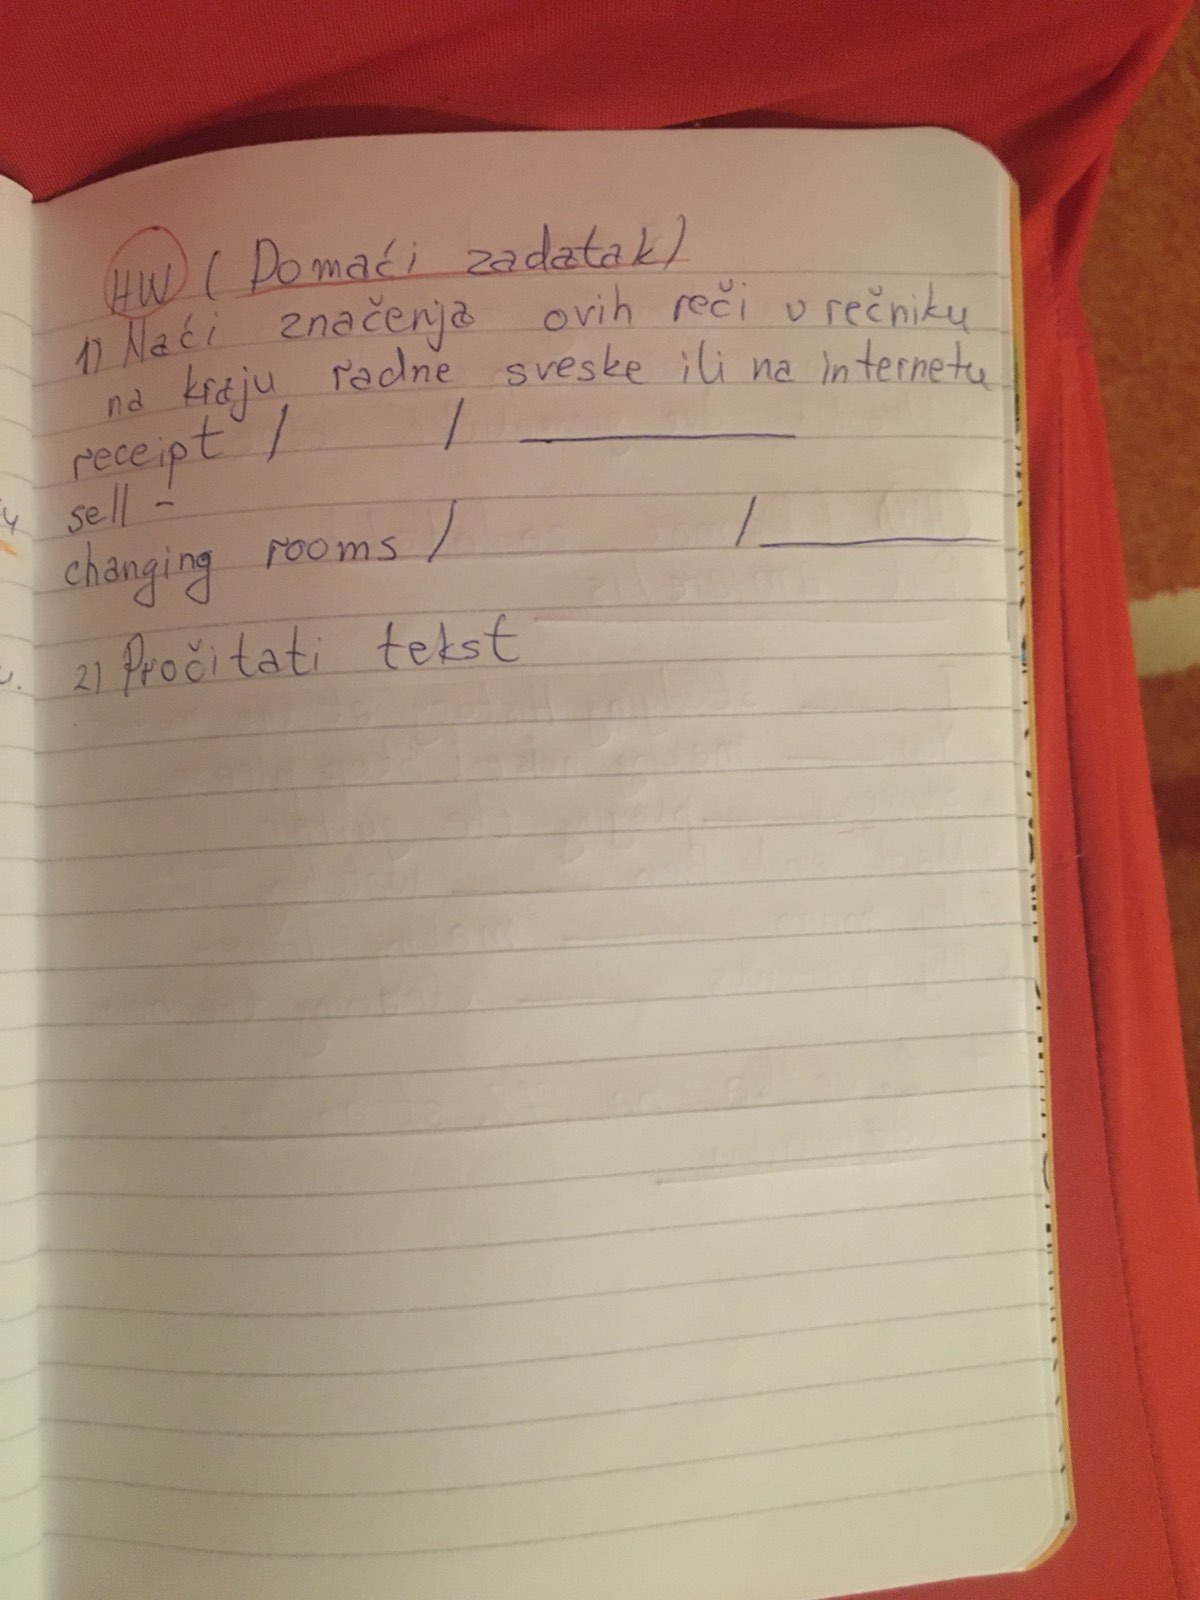 HW (Domaći zadatak)
1) Naći značenja ovih reči u rečniku
na kraju radne sveske ili na internetu
receipt /          / __________
sell -
changing rooms /          / __________
2) Pročitati tekst